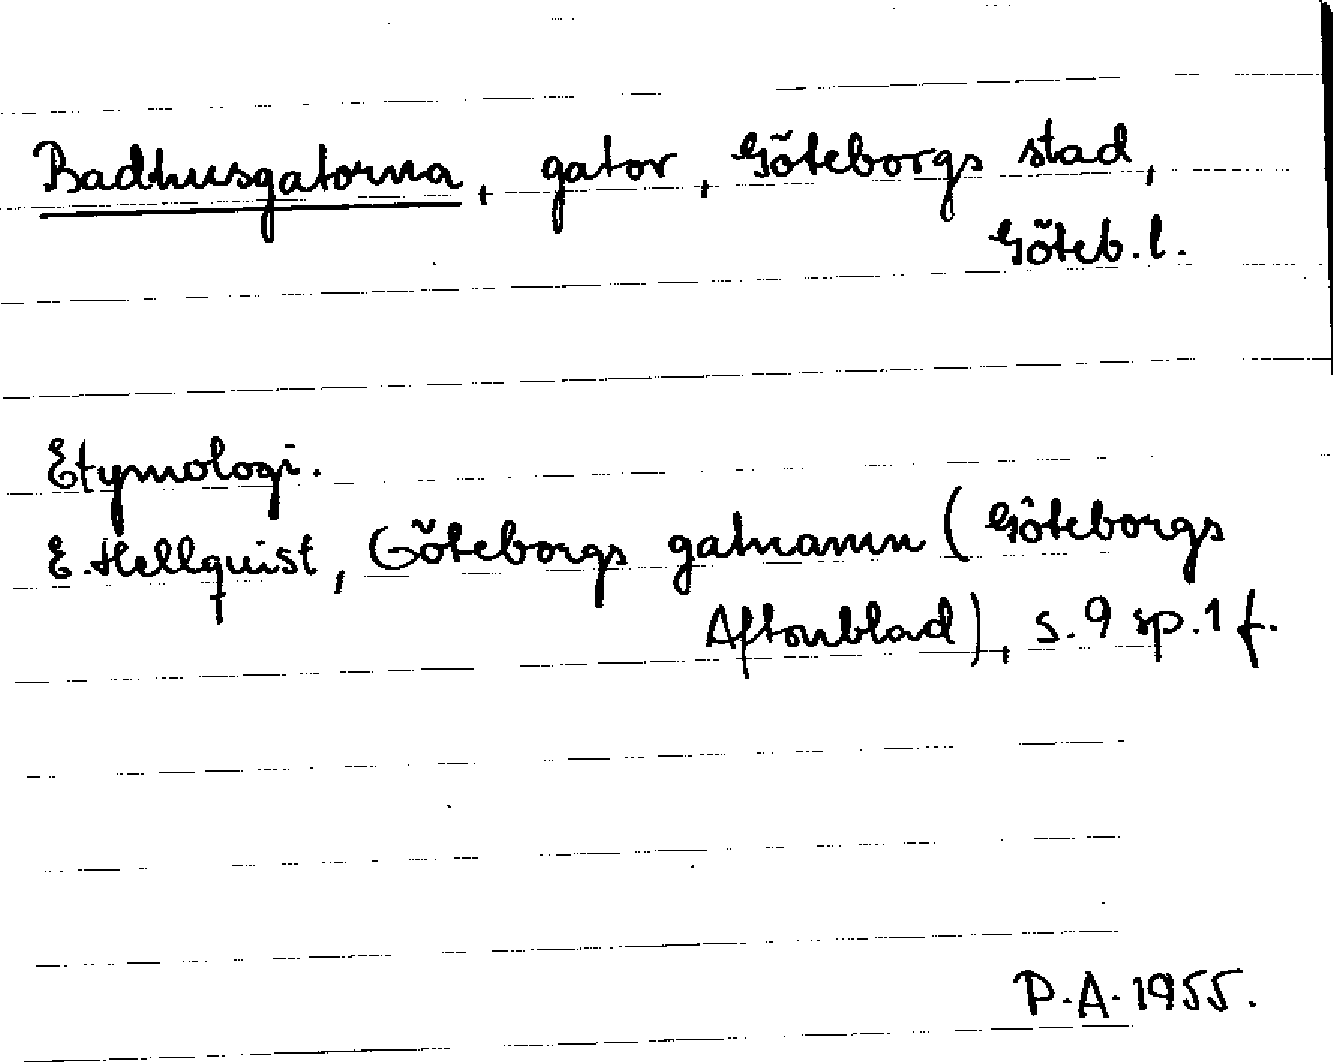 Badhusgatorna, gator, Göteborgs stad,
Göteb. l.
Etymologi.
E. Hellquist, Göteborgs gatnamn (Göteborgs
Aftonblad), s. 9 sp. 1 f.
P. A. 1955.